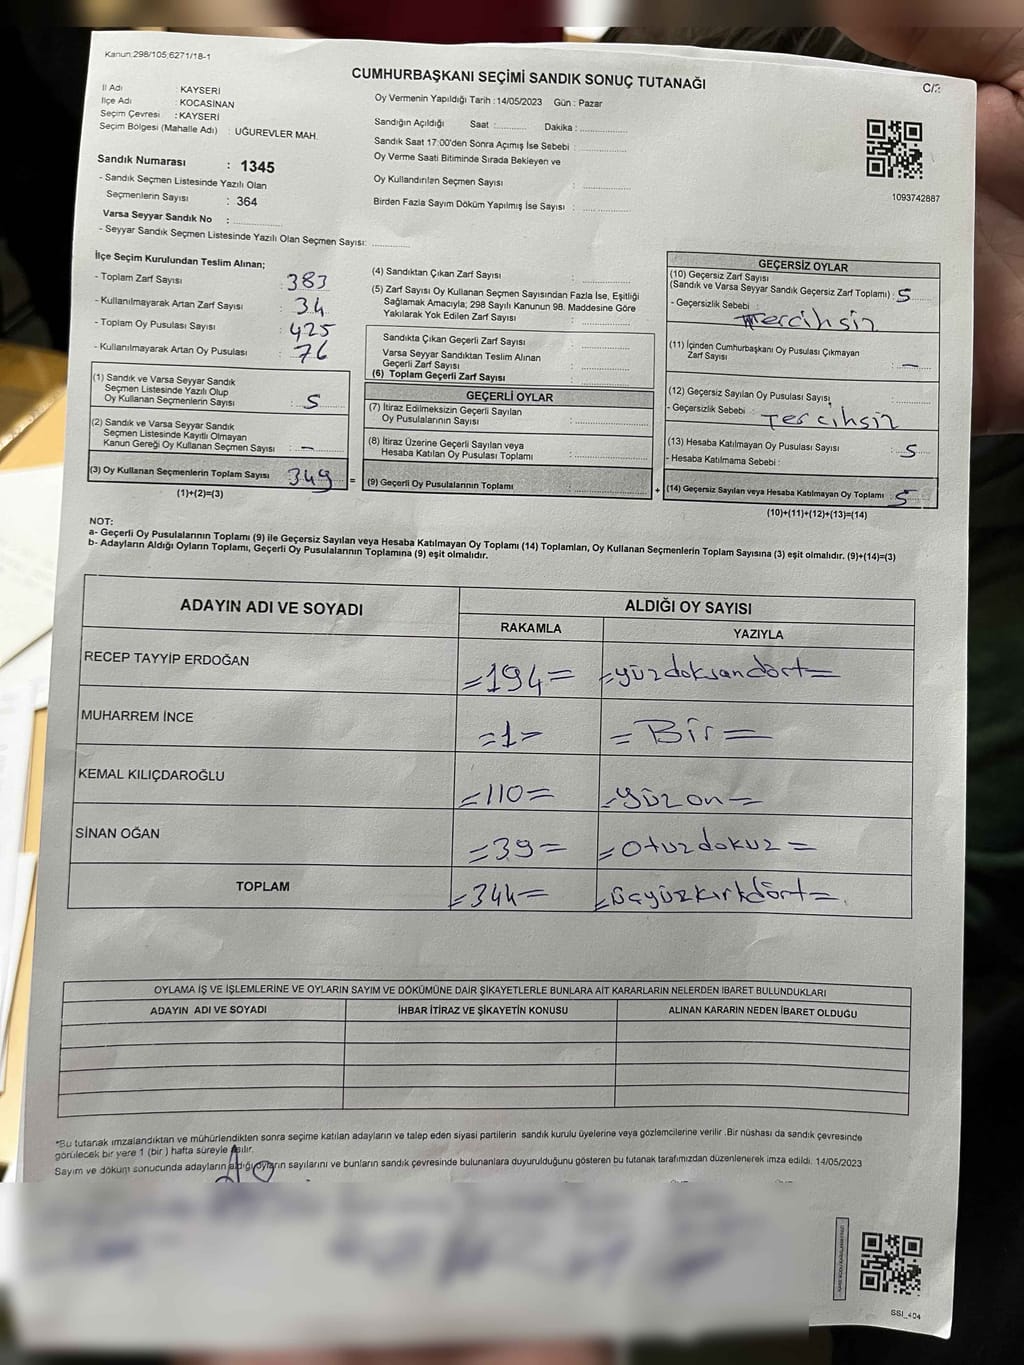 Kanun:298/105;6271/18-1
CUMHURBAŞKANI SEÇİMİ SANDIK SONUÇ TUTANAĞI
İl Adı : KAYSERİ
İlçe Adı : KOCASİNAN
Seçim Çevresi : KAYSERİ
Seçim Bölgesi (Mahalle Adı) : UĞUREVLER MAH.
Sandık Numarası : 1345
- Sandık Seçmen Listesinde Yazılı Olan
Seçmenlerin Sayısı : 364
Varsa Seyyar Sandık No :
- Seyyar Sandık Seçmen Listesinde Yazılı Olan Seçmen Sayısı:
Oy Vermenin Yapıldığı Tarih : 14/05/2023 Gün : Pazar
Sandığın Açıldığı Saat : Dakika :
Sandık Saat 17:00'den Sonra Açımış İse Sebebi :
Oy Verme Saati Bitiminde Sırada Bekleyen ve
Oy Kullandırılan Seçmen Sayısı :
Birden Fazla Sayım Döküm Yapılmış İse Sayısı :
1093742887
İlçe Seçim Kurulundan Teslim Alınan;
- Toplam Zarf Sayısı : 383
- Kullanılmayarak Artan Zarf Sayısı : 34
- Toplam Oy Pusulası Sayısı : 425
- Kullanılmayarak Artan Oy Pusulası : 76
(1) Sandık ve Varsa Seyyar Sandık
Seçmen Listesinde Yazılı Olup
Oy Kullanan Seçmenlerin Sayısı : 5
(2) Sandık ve Varsa Seyyar Sandık
Seçmen Listesinde Kayıtlı Olmayan
Kanun Gereği Oy Kullanan Seçmen Sayısı : -
(3) Oy Kullanan Seçmenlerin Toplam Sayısı 349 =
(1)+(2)=(3)
(4) Sandıktan Çıkan Zarf Sayısı :
(5) Zarf Sayısı Oy Kullanan Seçmen Sayısından Fazla İse, Eşitliği
Sağlamak Amacıyla; 298 Sayılı Kanunun 98. Maddesine Göre
Yakılarak Yok Edilen Zarf Sayısı :
Sandıkta Çıkan Geçerli Zarf Sayısı :
Varsa Seyyar Sandıktan Teslim Alınan
Geçerli Zarf Sayısı :
(6) Toplam Geçerli Zarf Sayısı :
GEÇERLİ OYLAR
(7) İtiraz Edilmeksizin Geçerli Sayılan
Oy Pusulalarının Sayısı :
(8) İtiraz Üzerine Geçerli Sayılan veya
Hesaba Katılan Oy Pusulası Toplamı :
(9) Geçerli Oy Pusulalarının Toplamı : +
GEÇERSİZ OYLAR
(10) Geçersiz Zarf Sayısı
(Sandık ve Varsa Seyyar Sandık Geçersiz Zarf Toplamı) : 5
- Geçersizlik Sebebi :
Tercihsiz
(11) İçinden Cumhurbaşkanı Oy Pusulası Çıkmayan
Zarf Sayısı : -
(12) Geçersiz Sayılan Oy Pusulası Sayısı :
- Geçersizlik Sebebi : Tercihsiz
(13) Hesaba Katılmayan Oy Pusulası Sayısı : 5
- Hesaba Katılmama Sebebi :
(14) Geçersiz Sayılan veya Hesaba Katılmayan Oy Toplamı : 5
(10)+(11)+(12)+(13)=(14)
NOT:
a- Geçerli Oy Pusulalarının Toplamı (9) ile Geçersiz Sayılan veya Hesaba Katılmayan Oy Toplamı (14) Toplamları, Oy Kullanan Seçmenlerin Toplam Sayısına (3) eşit olmalıdır. (9)+(14)=(3)
b- Adayların Aldığı Oyların Toplamı, Geçerli Oy Pusulalarının Toplamına (9) eşit olmalıdır.
ADAYIN ADI VE SOYADI ALDIĞI OY SAYISI
RAKAMLA YAZIYLA
RECEP TAYYİP ERDOĞAN =194= =yüzdoksandört=
MUHARREM İNCE =1= =Bir=
KEMAL KILIÇDAROĞLU =110= =yüzon=
SİNAN OĞAN =39= =Otuzdokuz=
TOPLAM =344= =Üçyüzkırkdört=
OYLAMA İŞ VE İŞLEMLERİNE VE OYLARIN SAYIM VE DÖKÜMÜNE DAİR ŞİKAYETLERLE BUNLARA AİT KARARLARIN NELERDEN İBARET BULUNDUKLARI
ADAYIN ADI VE SOYADI İHBAR İTİRAZ VE ŞİKAYETİN KONUSU ALINAN KARARIN NEDEN İBARET OLDUĞU
*Bu tutanak imzalandıktan ve mühürlendikten sonra seçime katılan adayların ve talep eden siyasi partilerin sandık kurulu üyelerine veya gözlemcilerine verilir .Bir nüshası da sandık çevresinde
görülecek bir yere 1 (bir ) hafta süreyle asılır.
Sayım ve döküm sonucunda adayların aldığı oyların sayılarını ve bunların sandık çevresinde bulunanlara duyurulduğunu gösteren bu tutanak tarafımızdan düzenlenerek imza edildi. 14/05/2023